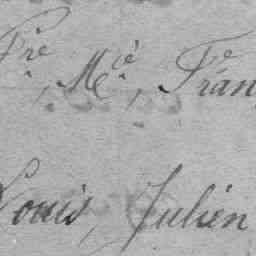 Pre, Mcè, Fran
Louis, Julien